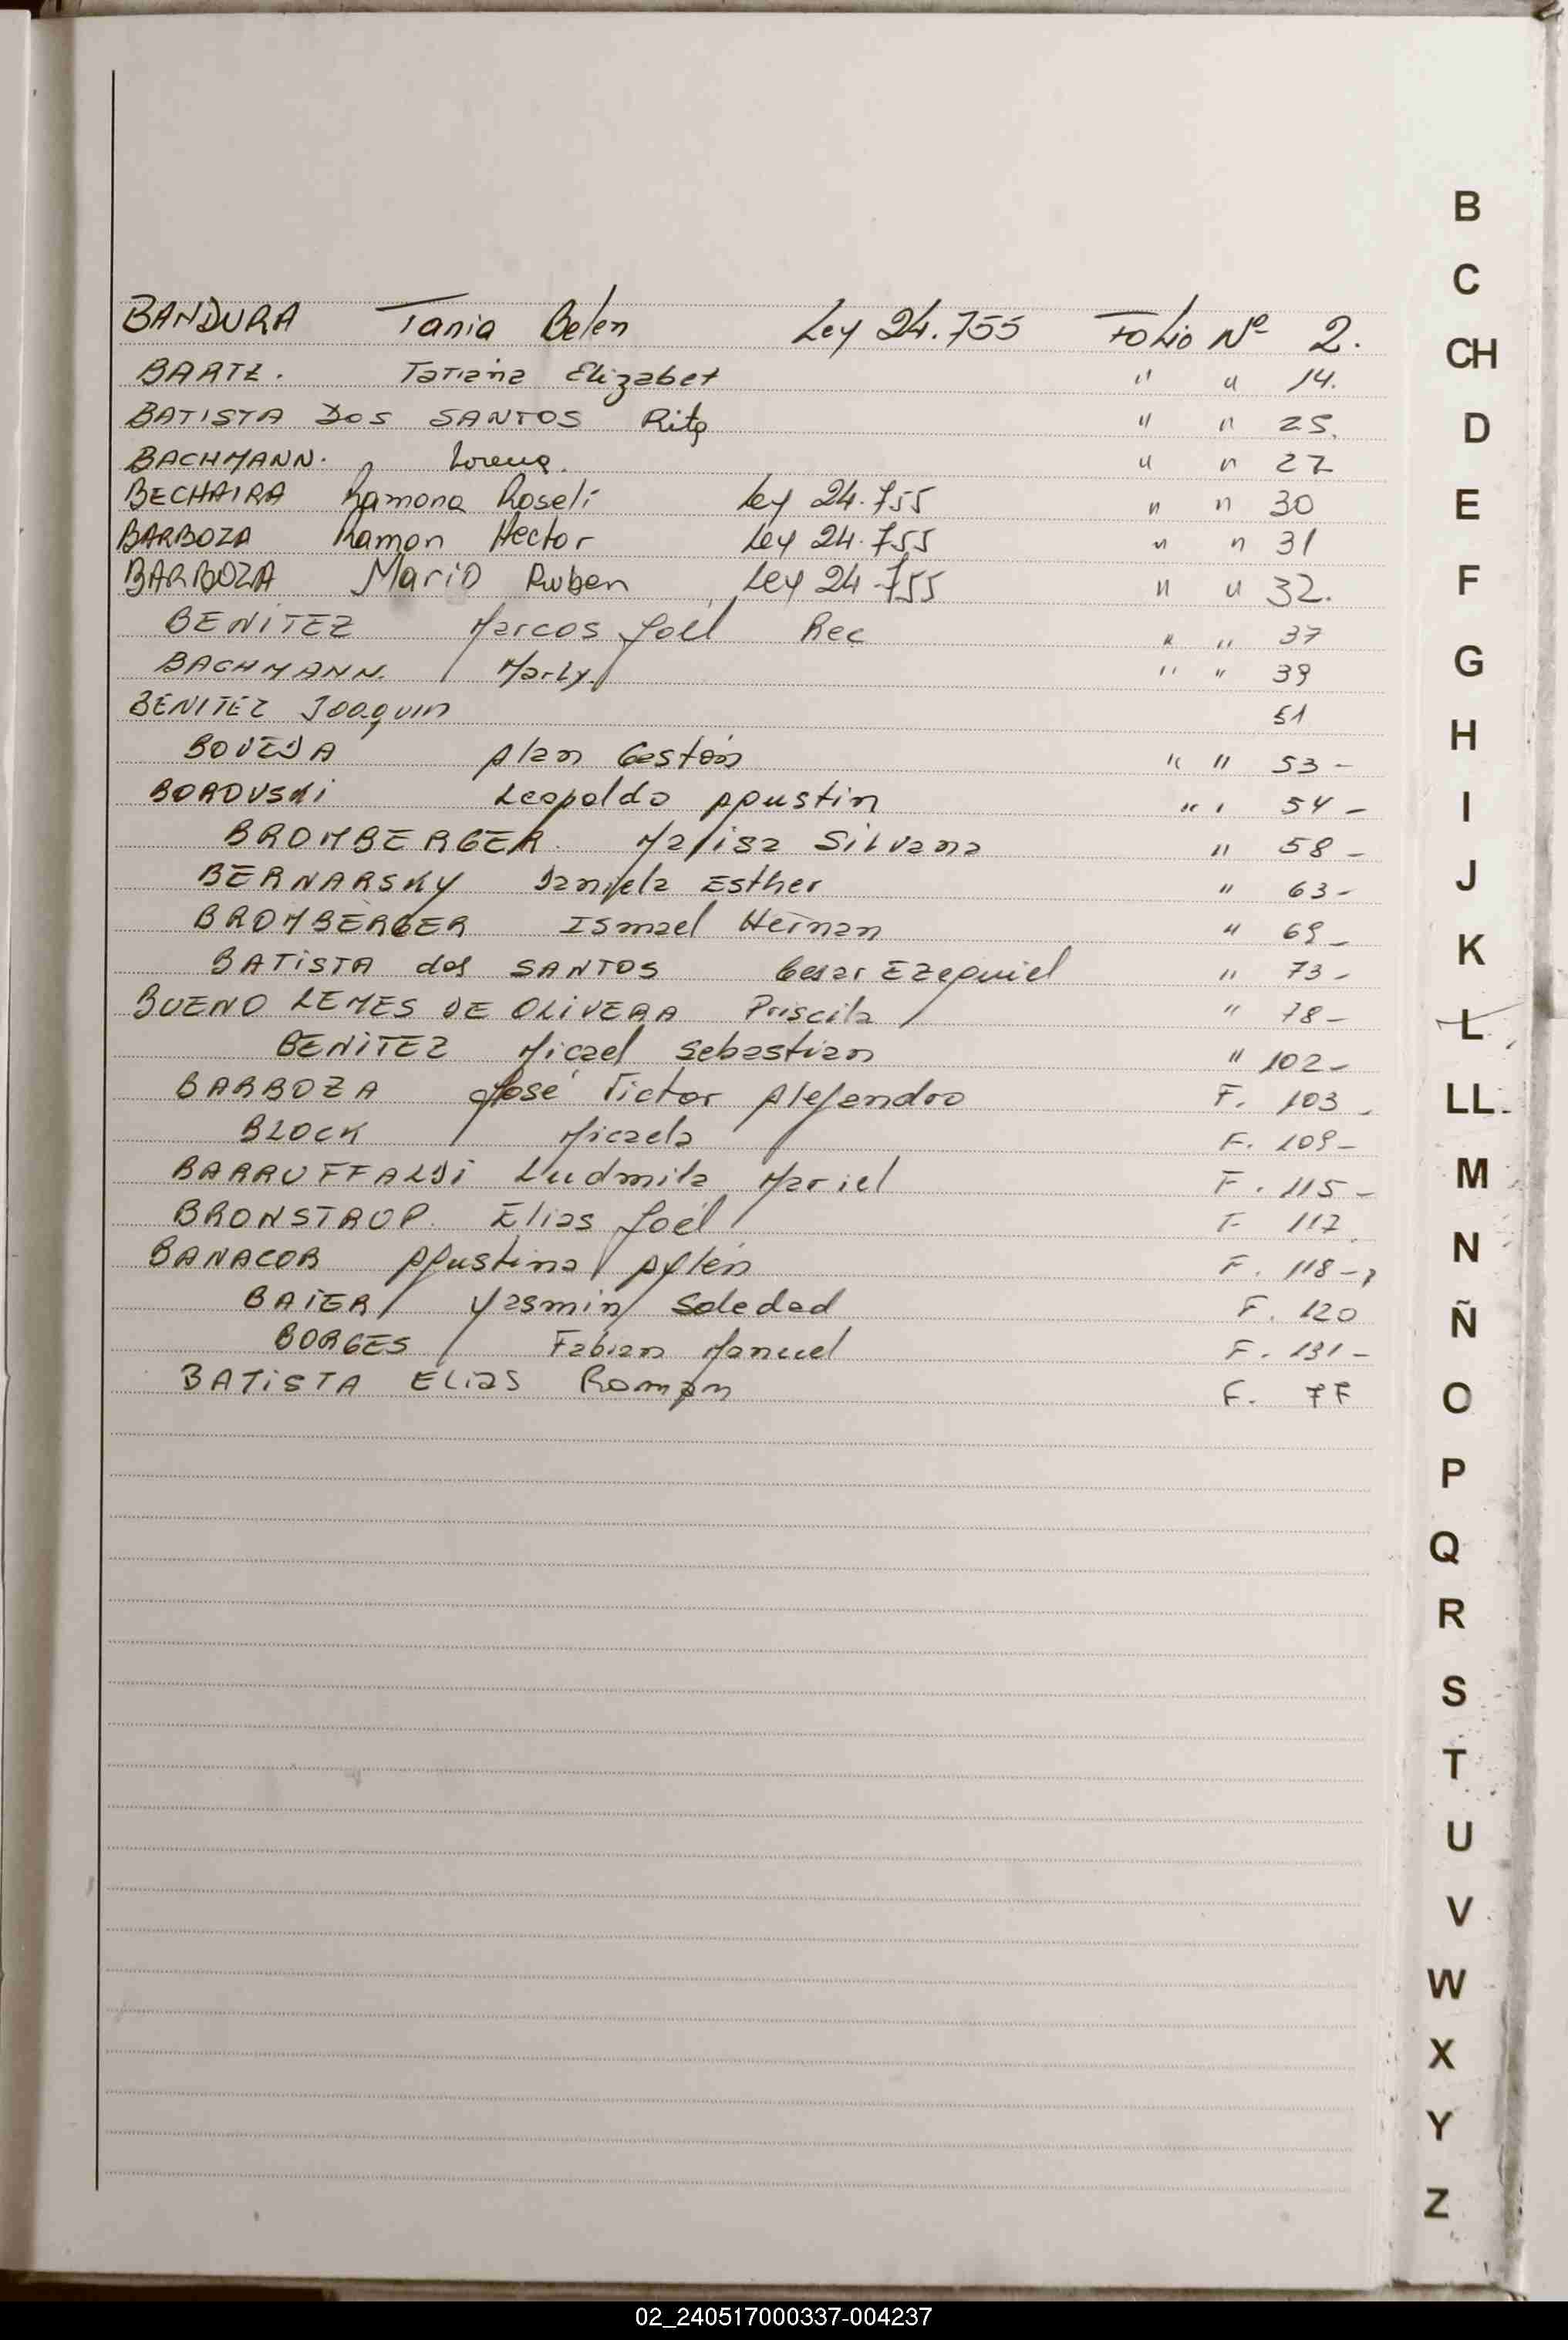 BANDURA Tania Belen Ley 24.755 Folio Nº 2.
BARTZ. Tatiana Elizabet " " 14.
BATISTA DOS SANTOS Rita " " 25.
BACHMANN. Lorena. " " 27
BECHAIRA Ramona Roseli Ley 24.755 " " 30
BARBOZA Ramon Hector Ley 24.755 " " 31
BARBOZA Mario Ruben Ley 24.755 " " 32.
BENITEZ Marcos Joél Rec " " 37
BACHMANN. Marly. " " 39
BENITEZ Joaquin 51
BOVEDA Alan Gastón " " 53 -
BOROVSKI Leopoldo Agustin " " 54 -
BROMBERGER. Marisa Silvana " 58 -
BERNARSKY Daniela Esther " 63 -
BROMBERGER Ismael Hernan " 69 -
BATISTA dos SANTOS Cesar Ezequiel " 73 -
BUENO LEMES DE OLIVERA Priscila " 78 -
BENITEZ Micael Sebastian " 102 -
BARBOZA José Victor Alejandro F. 103 -
BLOCK Micaela F. 109 -
BARRUFFALDI Ludmila Mariel F. 115 -
BRONSTRUP. Elias Joél F 117
BANACOR Agustina Aylén F. 118 -
BAIER Yasmin Soledad F. 120
BORGES Fabian Manuel F. 131 -
BATISTA Elias Roman F. 77
B
C
CH
D
E
F
G
H
I
J
K
L
LL
M
N
Ñ
O
P
Q
R
S
T
U
V
W
X
Y
Z
02_240517000337-004237